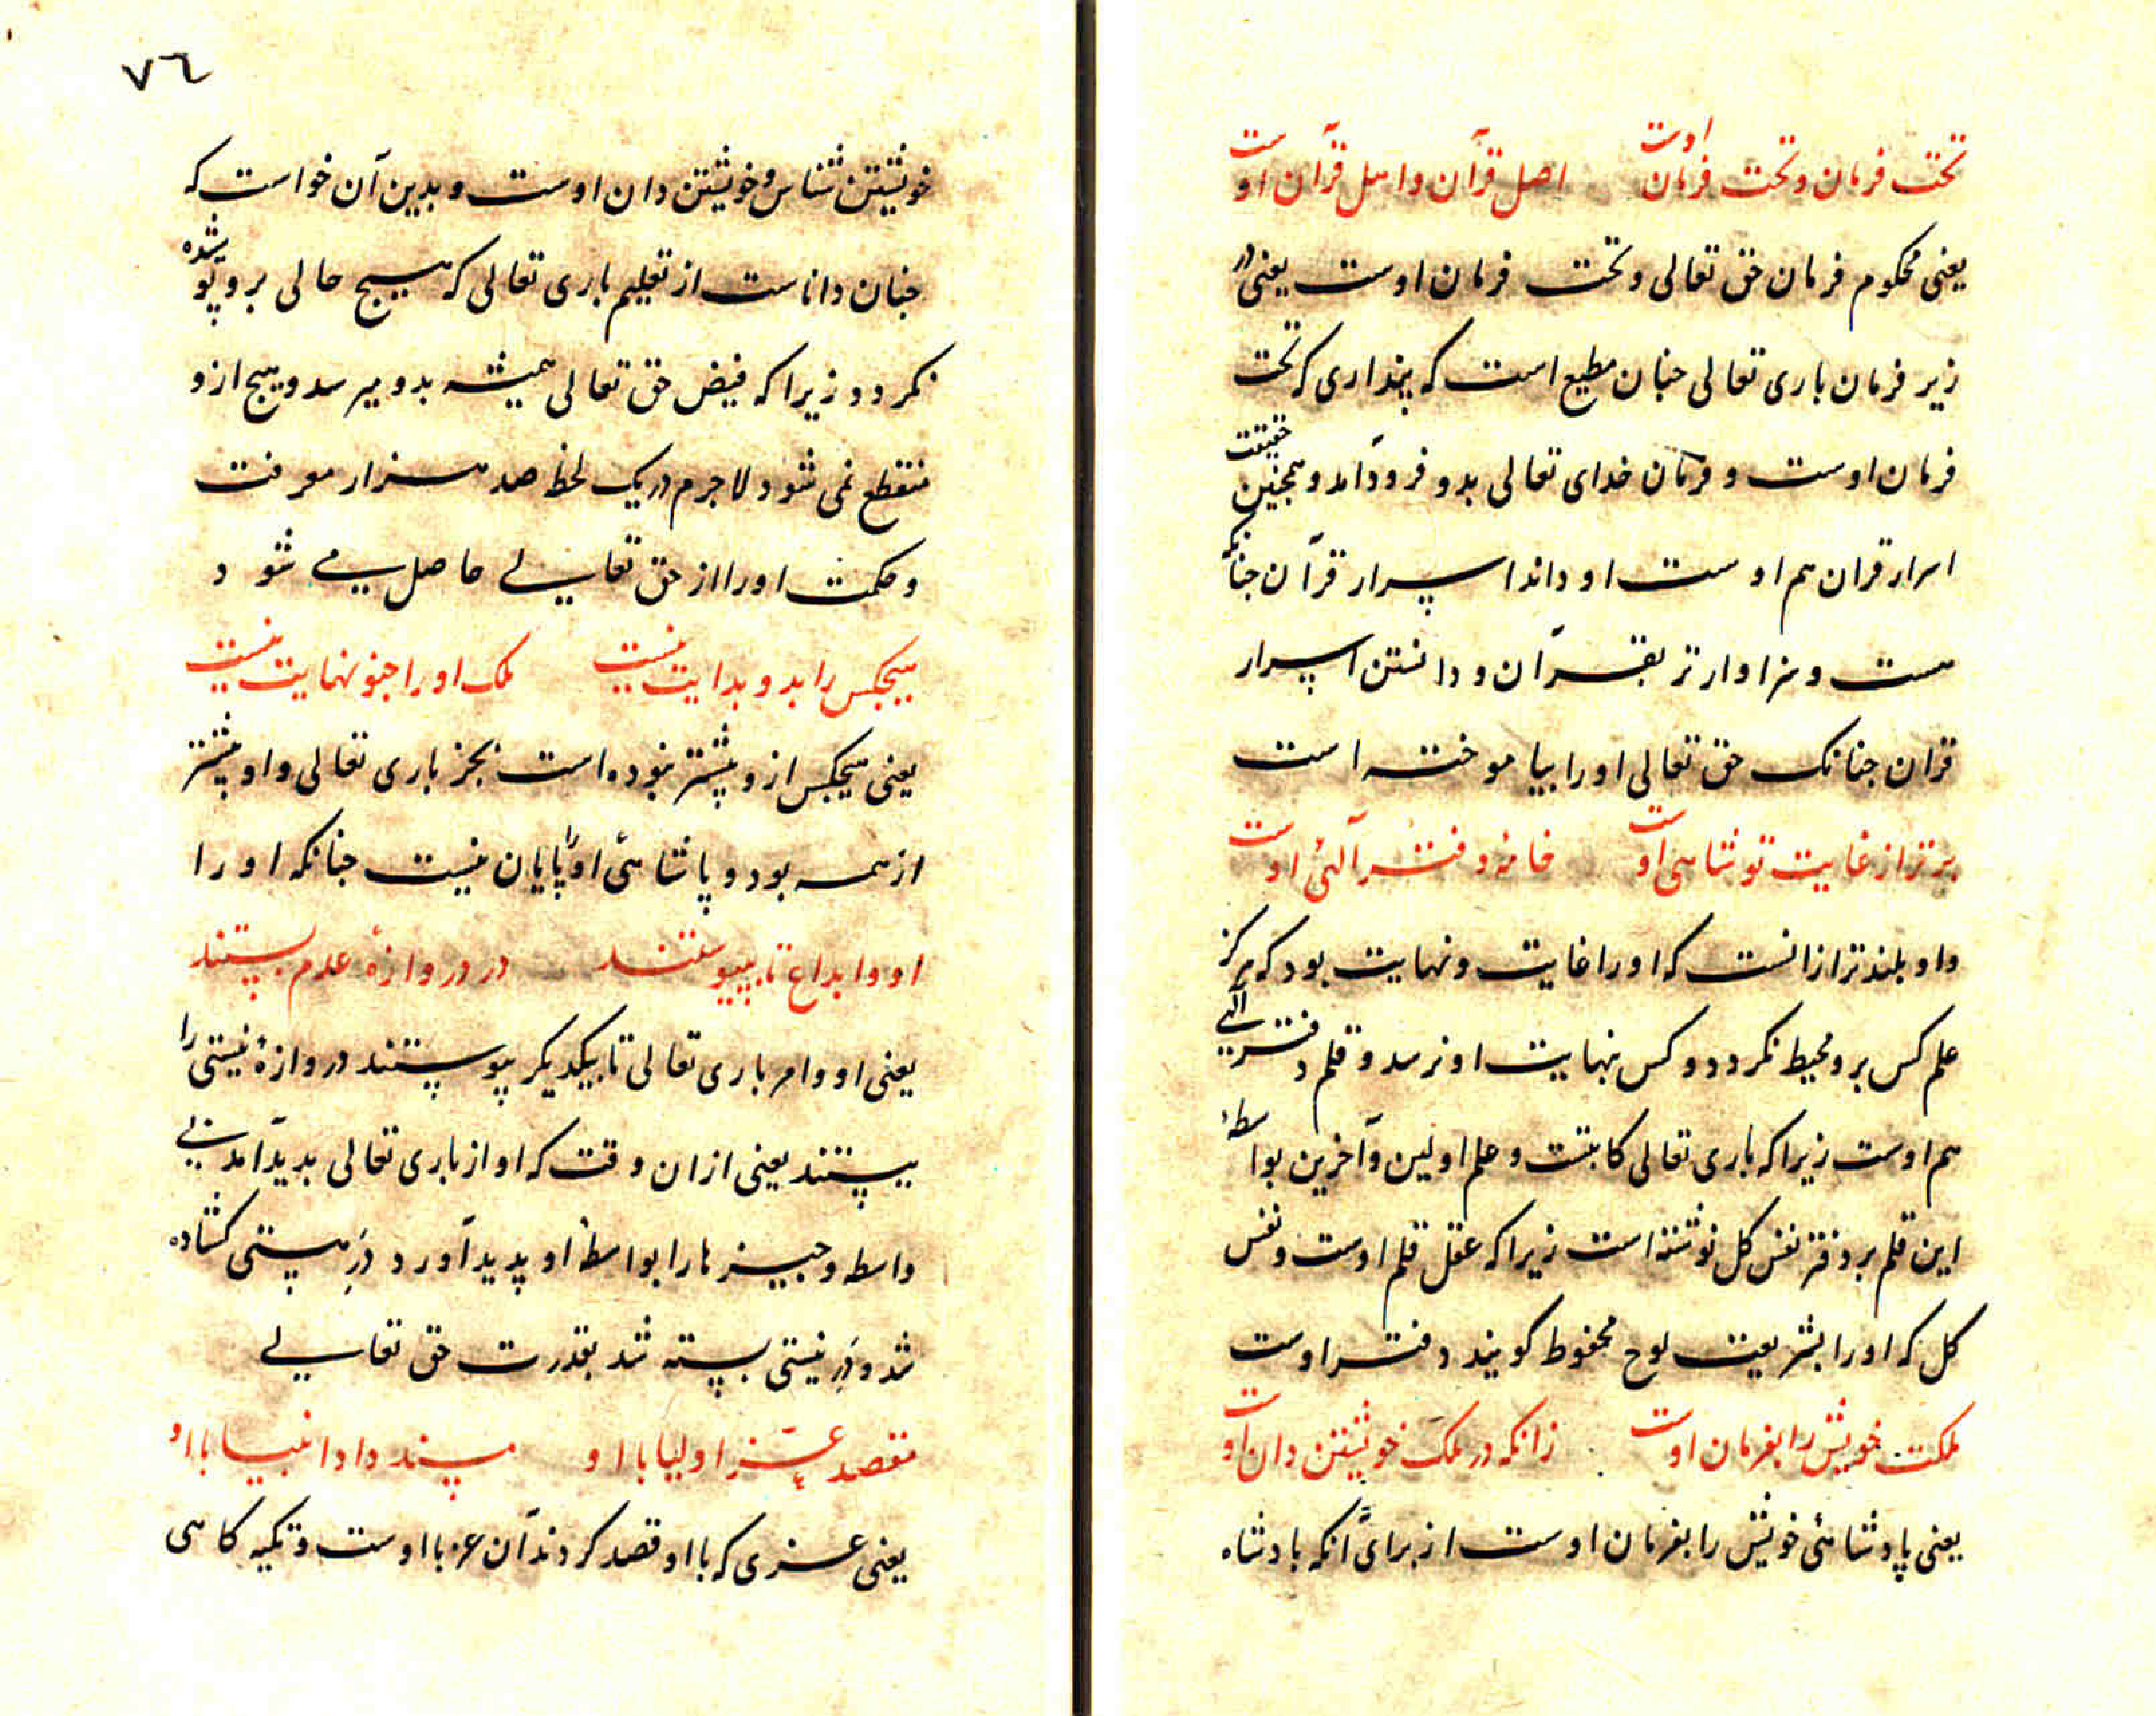 تحت فرمان و تحت فرمان اوست اصل قرآن و اهل قرآن اوست
یعنی محکوم فرمان حق تعالی و تحت فرمان اوست یعنی در
زیر فرمان باری تعالی جنان مطیع است که پنداری که تحت
فرمان اوست و فرمان خدای تعالی بدو فرود آمد و همجنین حقیقت
اسرار قران هم اوست او داند اسرار قرآن جنانکه
هست و سزاوارتر بقرآن و دانستن اسرار
قران جنانک حق تعالی او را بیاموخته است
برتر از غایت تو شاهی اوست خامه و دفتر آلهی اوست
و او بلندتر ازانست که او را غایت و نهایت بود که هرگز
علم کس برو محیط نکردد و کس بنهایت او نرسد و قلم و دفتر الهی
هم اوست زیرا که باری تعالی کاتبست و علم اولین و آخرین بواسطهٔ
این قلم بر دفتر نفس کل نوشته است زیرا که عقل قلم اوست و نفس
کل که او را بشریعت لوح محفوظ کویند دفتر اوست
ملکت خویش را بفرمان اوست زانکه در ملک خویشتن دان اوست
یعنی پادشاهئ خویش را بفرمان اوست از برای آنکه بادشاه
٧٦
خویشتن شناس و خویشتن دان اوست و بدین آن خواست که
جنان داناست از تعلیم باری تعالی که هیج حالی برو پوشیده
نکردد زیرا که فیض حق تعالی همیشه بدو میرسد و هیج ازو
منقطع نمی شود لاجرم در یک لحظه صد هزار معرفت
و حکمت او را از حق تعالی حاصل می شود
هیجکس را بدو بدایت نیست ملک او را جنو نهایت نیست
یعنی هیجکس ازو پیشتر نبوده است بجز باری تعالی و او پیشتر
از همه بود و پاشاهئ او را پایان نیست جنانکه او را
او و ابداع تا بپیوستند در دروازهٔ عدم بستند
یعنی او و امر باری تعالی تا بیکدیکر پیوستند دروازهٔ نیستی را
ببستند یعنی ازان وقت که او از باری تعالی بدید آمد بی
واسطه و جیزها را بواسطهٔ او پدید آورد درِ هستی کشاده
شد و درِ نیستی بسته شد بقدرت حق تعالی
مقصد عزّ اولیا با او مسند داد انبیا با او
یعنی عزی که با او قصد کردند آن عز با اوست و تکیه کاهی